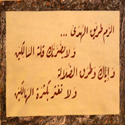 الزم طريق الهدى ...
ولا يضرك قلة السالكين
وإياك وطرق الضلالة
ولا تغتر بكثرة الهالكين